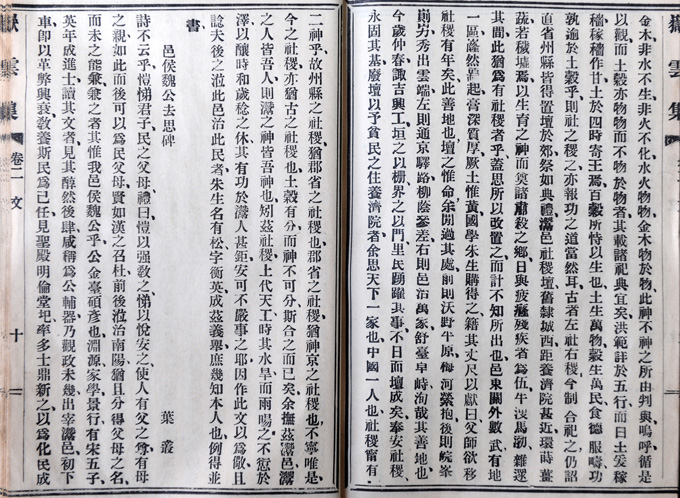 嶽雲集
金木非水不生非火不化水火物物金木物於物此神不神之所由判與嗚呼循是
以觀而土穀亦物物而不物於物者其載諸祀典宜矣洪範詳於五行而曰土爰稼
穡稼穡作甘土於四時寄王焉百穀所恃以生也土生萬物穀生萬民食德服疇功
孰逾於土穀乎則社之稷之亦報功之道當然耳古者左社右稷今制合祀之仍詔
直省州縣皆得置壇於郊祭如典禮灊邑社稷壇舊隸城西距養濟院甚近環蒔薑
蔬若穢墟焉以生育之神而奠諸肅殺之鄉日與疲癃殘疾者為伍牛溲馬勃雜遝
其間此猶為有社稷者乎蓋思所以改置之而計不知所出也邑東關外數武有地
一區巋然踞起膏深質厚厥土惟黃國學朱生購得之籍其丈尺以獻曰父師欲移
社稷有年矣此善地也壇之惟命余閒過其處前則沃野平原梅河縈抱後則皖峯
崱屴秀出雲端左則通京驛路柳蔭參差右則邑治萬家舒臺卓峙洵哉其善地也
今歲仲春諏吉興工垣之以柵界之以門里民踴躍其事不日而壇成矣奉安社稷
永固其基廢壇以予貧民之住養濟院者余思天下一家也中國一人也社稷甯有
二神乎故州縣之社稷猶郡省之社稷也郡省之社稷猶神京之社稷也不寧唯是
今之社稷亦猶古之社稷也土穀有分而神不可分斯合之而已矣余撫茲灊邑灊
之人皆吾人則灊之神皆吾神也矧茲社稷上代天工時其水旱而雨暘之不愆於
澤以釀時和歲稔之休其有功於灊人甚鉅安可不嚴事之耶因作此文以為儆且
諗夫後之涖此邑治此民者朱生名有松字衡英成茲義舉庶幾知本人也例得並
書
邑侯魏公去思碑
葉叢
詩不云乎愷悌君子民之父母禮曰愷以强教之悌以悅安之使人有父之尊有母
之親如此而後可以為民父母賢如漢之召杜前後涖治南陽猶且分得父母之名
而未之能兼兼之者其惟我邑侯魏公乎公金臺碩彥也淵源家學景行有宋五子
英年成進士讀其文者見其醇然後肆咸稱為公輔器乃觀政未幾出宰灊邑初下
車即以革弊興衰教養斯民為己任見聖殿明倫堂圮率多士鼎新之以為化民成
嶽雲集
卷二
文
十